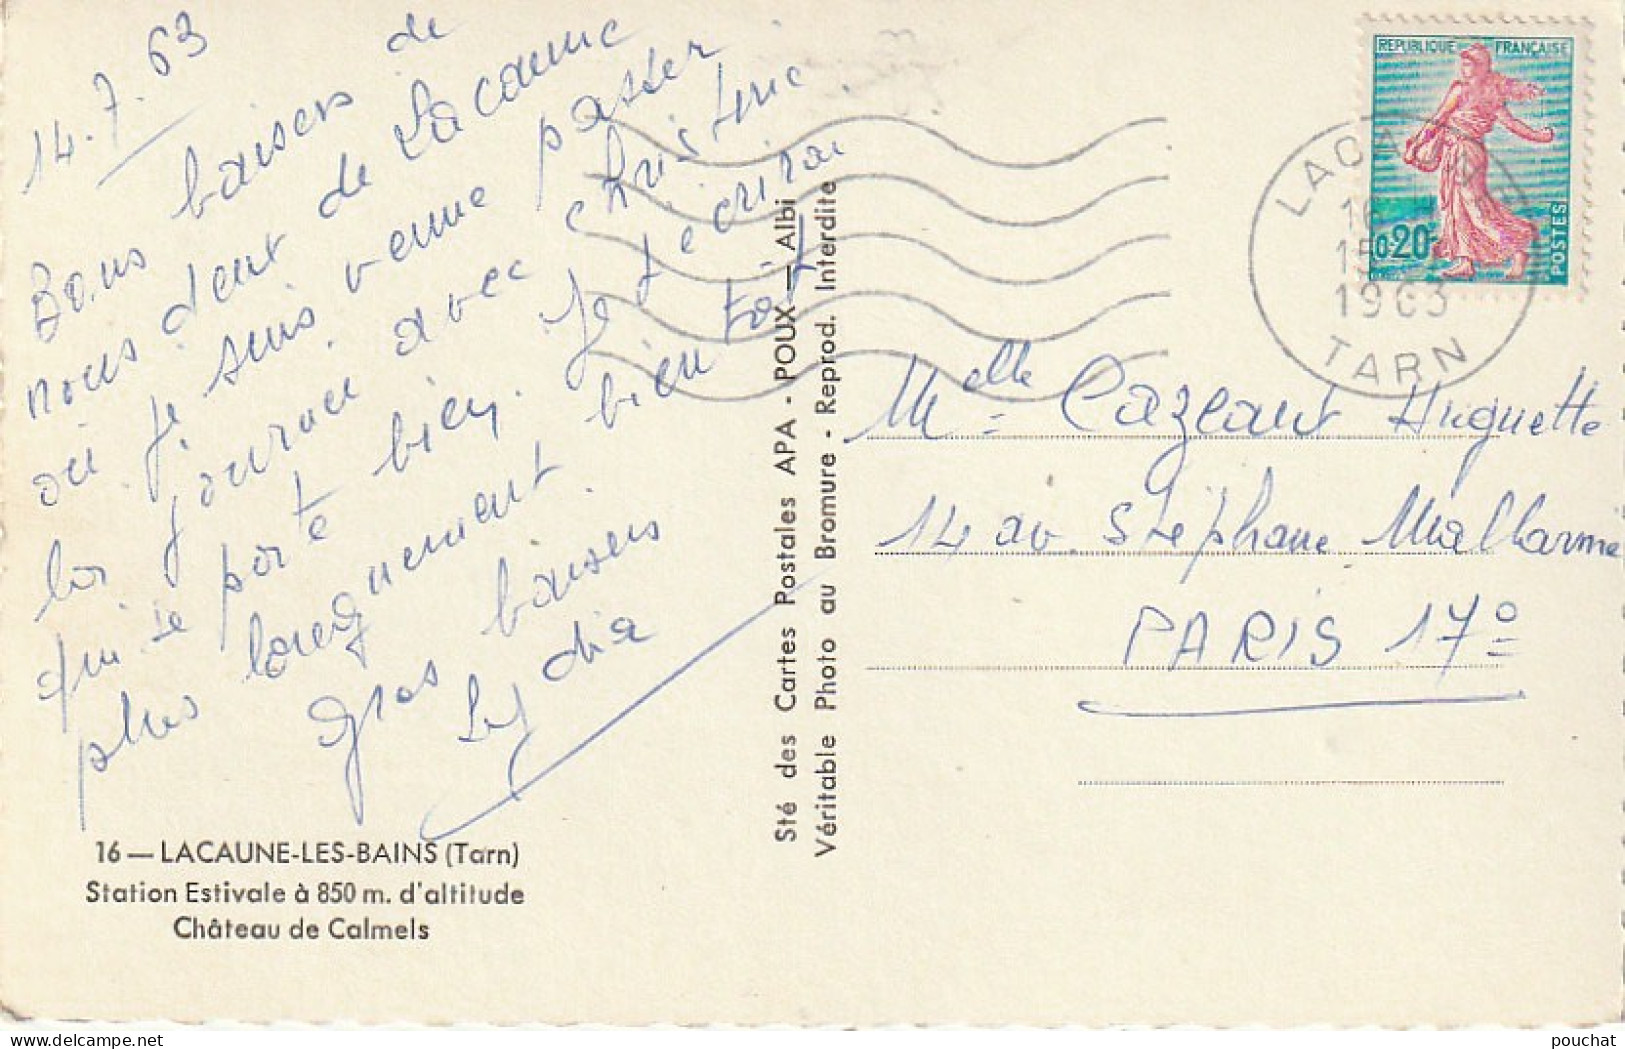 14.7.63
Bons baisers de
nous deux de Lacaune
où je suis venue passer
la journée avec Christine.
qui se porte bien. Je t'écrirai
plus longuement bientôt
Gros baisers
Lydia
16 — LACAUNE-LES-BAINS (Tarn)
Station Estivale à 850 m. d'altitude
Château de Calmels
Sté des Cartes Postales APA - POUX — Albi
Véritable Photo au Bromure - Reprod. Interdite
REPUBLIQUE FRANÇAISE
0,20
POSTES
LACAUNE
1963
TARN
Melle Cazeaux Huguette
14 av. Stéphane Mallarmé
PARIS 17º
pouchat